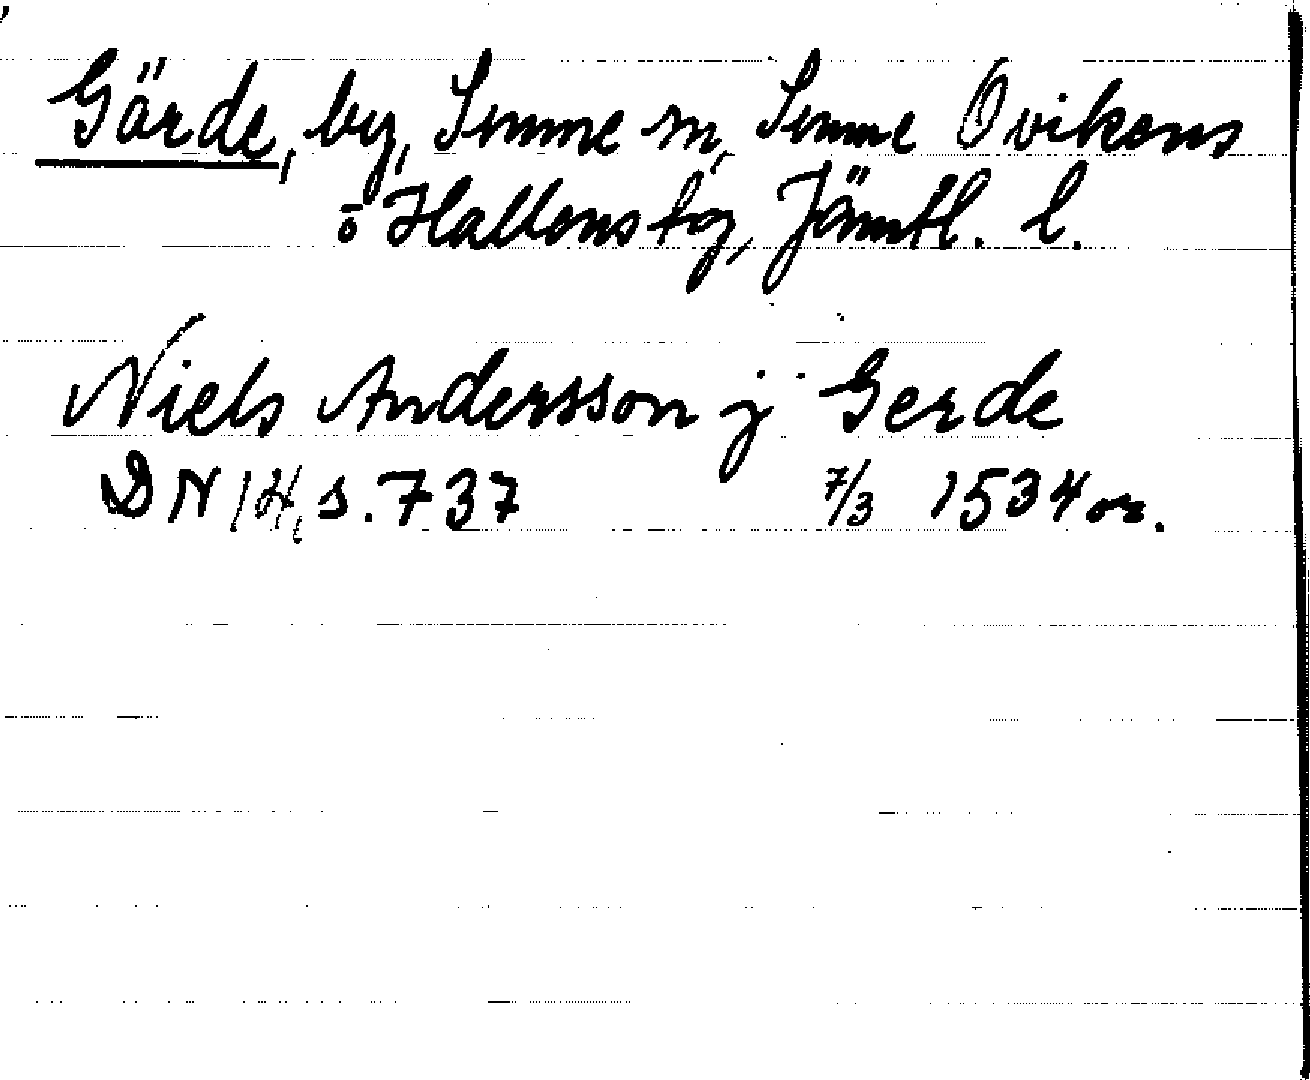 Gärde, by, Sunne sn, Sunne Ovikens
ō Hallens tg, Jämtl. l.
Niels Andersson j Gerde
DN 14, s. 737 7/3 1534 or.